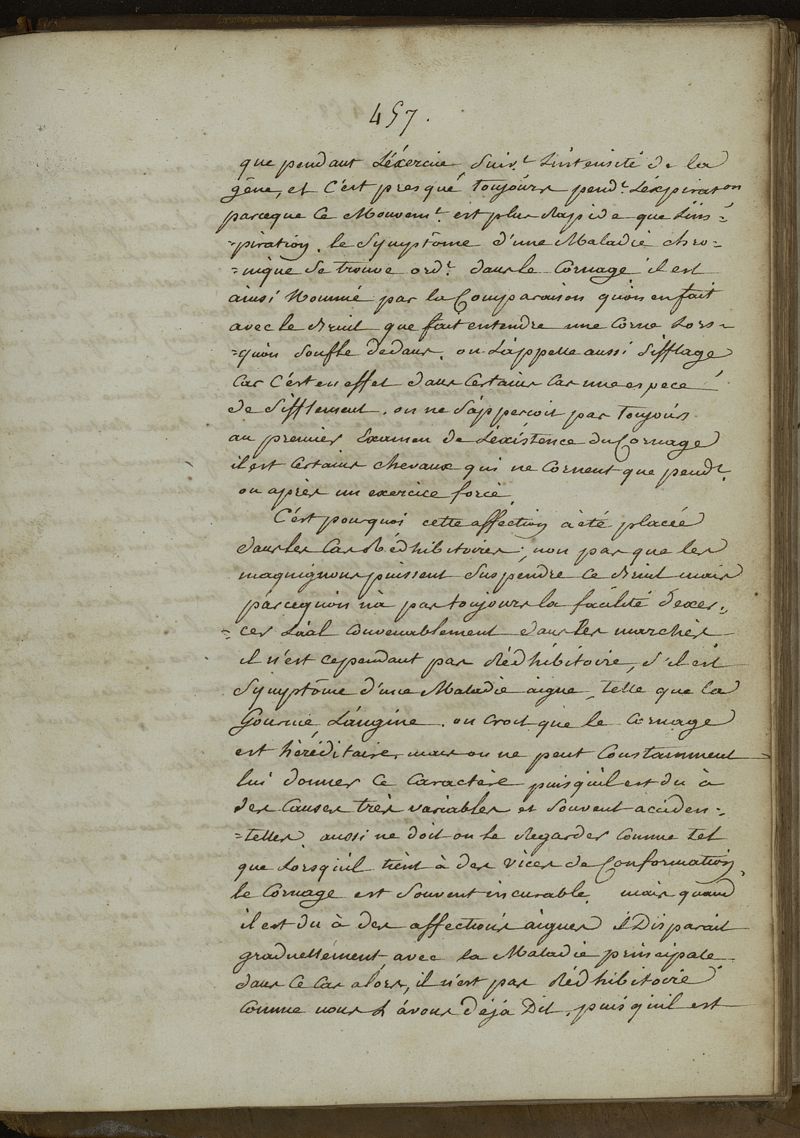 457.
que pendant L'éxercice Suiv.t L'intensité de la
gêne, et C'est presqué toujours pend.t L'éxpiraton
parceque Ce Mouvem.t est plus Rapide que L'ins=
=piration. le Symptôme d'une Maladie chro=
=nique Se trouve ord.t dans le Cornage il est
ainsi Nommé par la Comparaison qu'on en fait
avec le Bruit que fait entendre une Corne Lors=
=qu'on Souffle dedans. on L'appelle aussi Sifflage
Car C'est en effet dans Certains Cas une espece
de Sifflement. on ne S'apperçoit pas toujours
au premier Examen de L'éxistence du Cornage
il est Certains chevaux qui ne Cornent que pend.t
ou après un exercice forcé.
C'est pourquoi cette affection à été placée
dans les Cas Rédhibitoires; non pas que les
maquignons puissent Suspendre Ce Bruit mais
parcequ'on n'a pas toujours la facilité d'exer=
=cer L'a'al Convenablement dans Les marchés
il n'est cependant pas Rédhibitoire, S'il est
Symptôme d'une Maladie aigue, telle que la
Gourme, L'angine. on Croit que le Cornage
est héréditaire, mais on ne peut Constamment
lui donner Ce Caractère puisqu'il est du à
des Causes très variables et Souvent acciden=
=telles aussi ne doit on le Regarder Comme tel
que Lorsqu'il tient à des vices de Conformation,
le Cornage est Souvent incurable, mais quand
il est du à des affections aigues il Disparait
graduellement, avec la Maladie principale
dans Ce Cas alors, il n'est pas Rédhibitoire
Comme nous L'avons déjà Dit, puisqu'il est